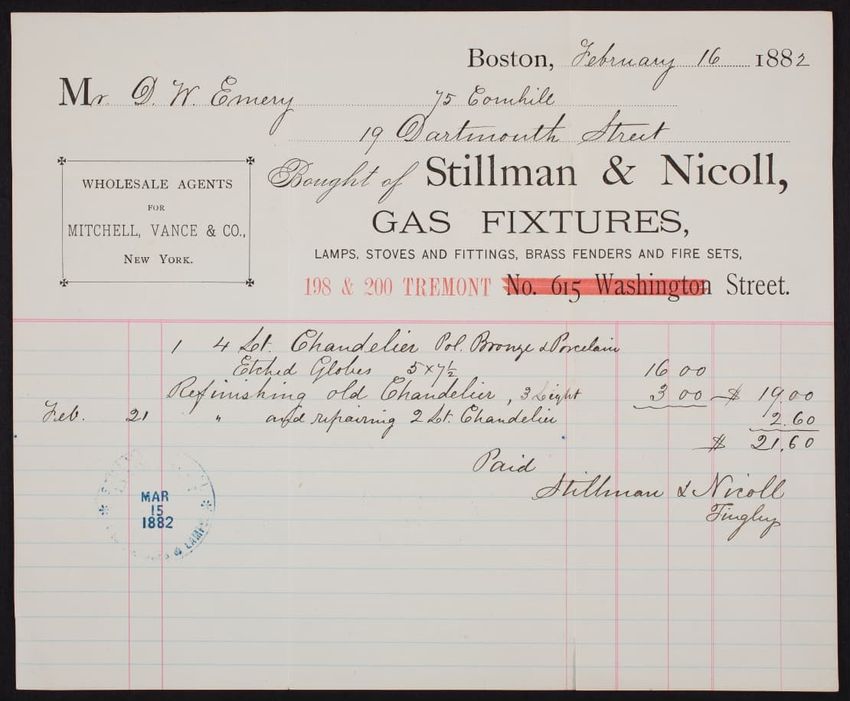 Boston, February 16 1882
Mr. D. W. Emery 75 Cornhill
19 Dartmouth Street
Bought of Stillman & Nicoll,
WHOLESALE AGENTS
FOR
MITCHELL, VANCE & CO.,
NEW YORK.
GAS FIXTURES,
LAMPS, STOVES AND FITTINGS, BRASS FENDERS AND FIRE SETS,
198 & 200 TREMONT No. 615 Washington Street.
1 4 Lt. Chandelier Pol. Bronze & Porcelain
Etched Globes 5 x 7 1/2 16 00
Refinishing old Chandelier, 3 Light 3 00 $ 19.00
Feb. 21 " and repairing 2 Lt. Chandelier 2.60
$ 21.60
Paid
Stillman & Nicoll
Tingley
MAR
15
1882
& LAMPS